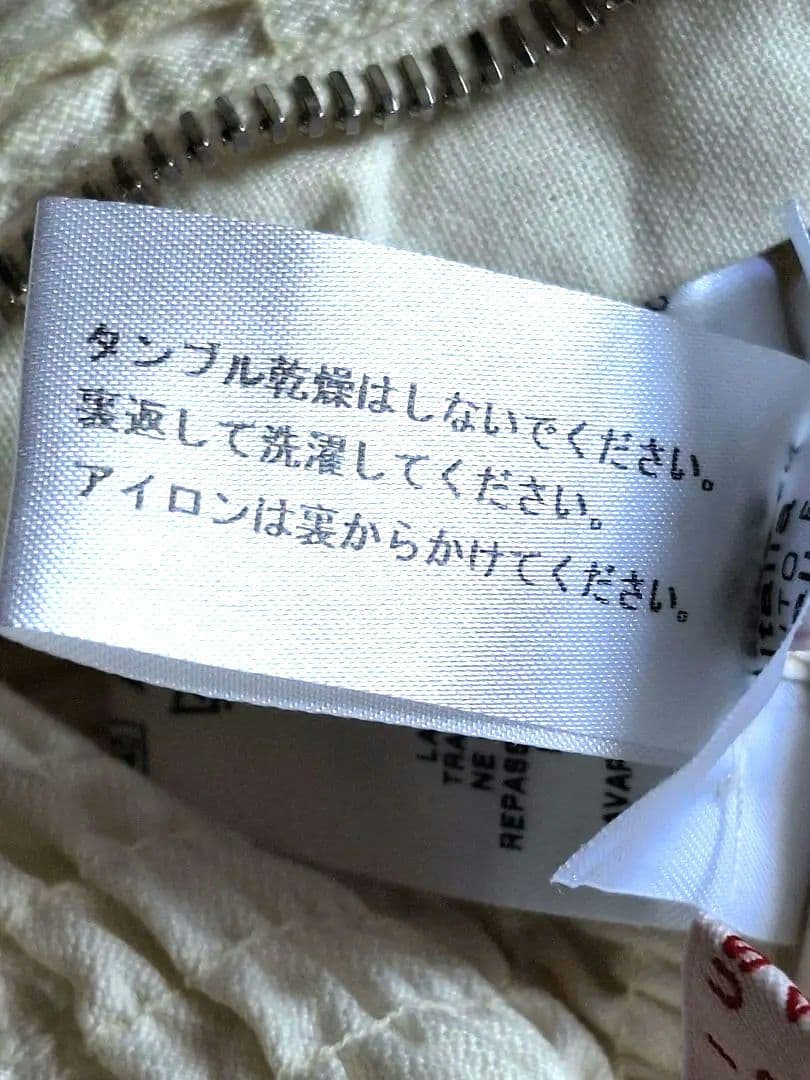 タンブル乾燥はしないでください。
裏返して洗濯してください。
アイロンは裏からかけてください。
NE
REPASS